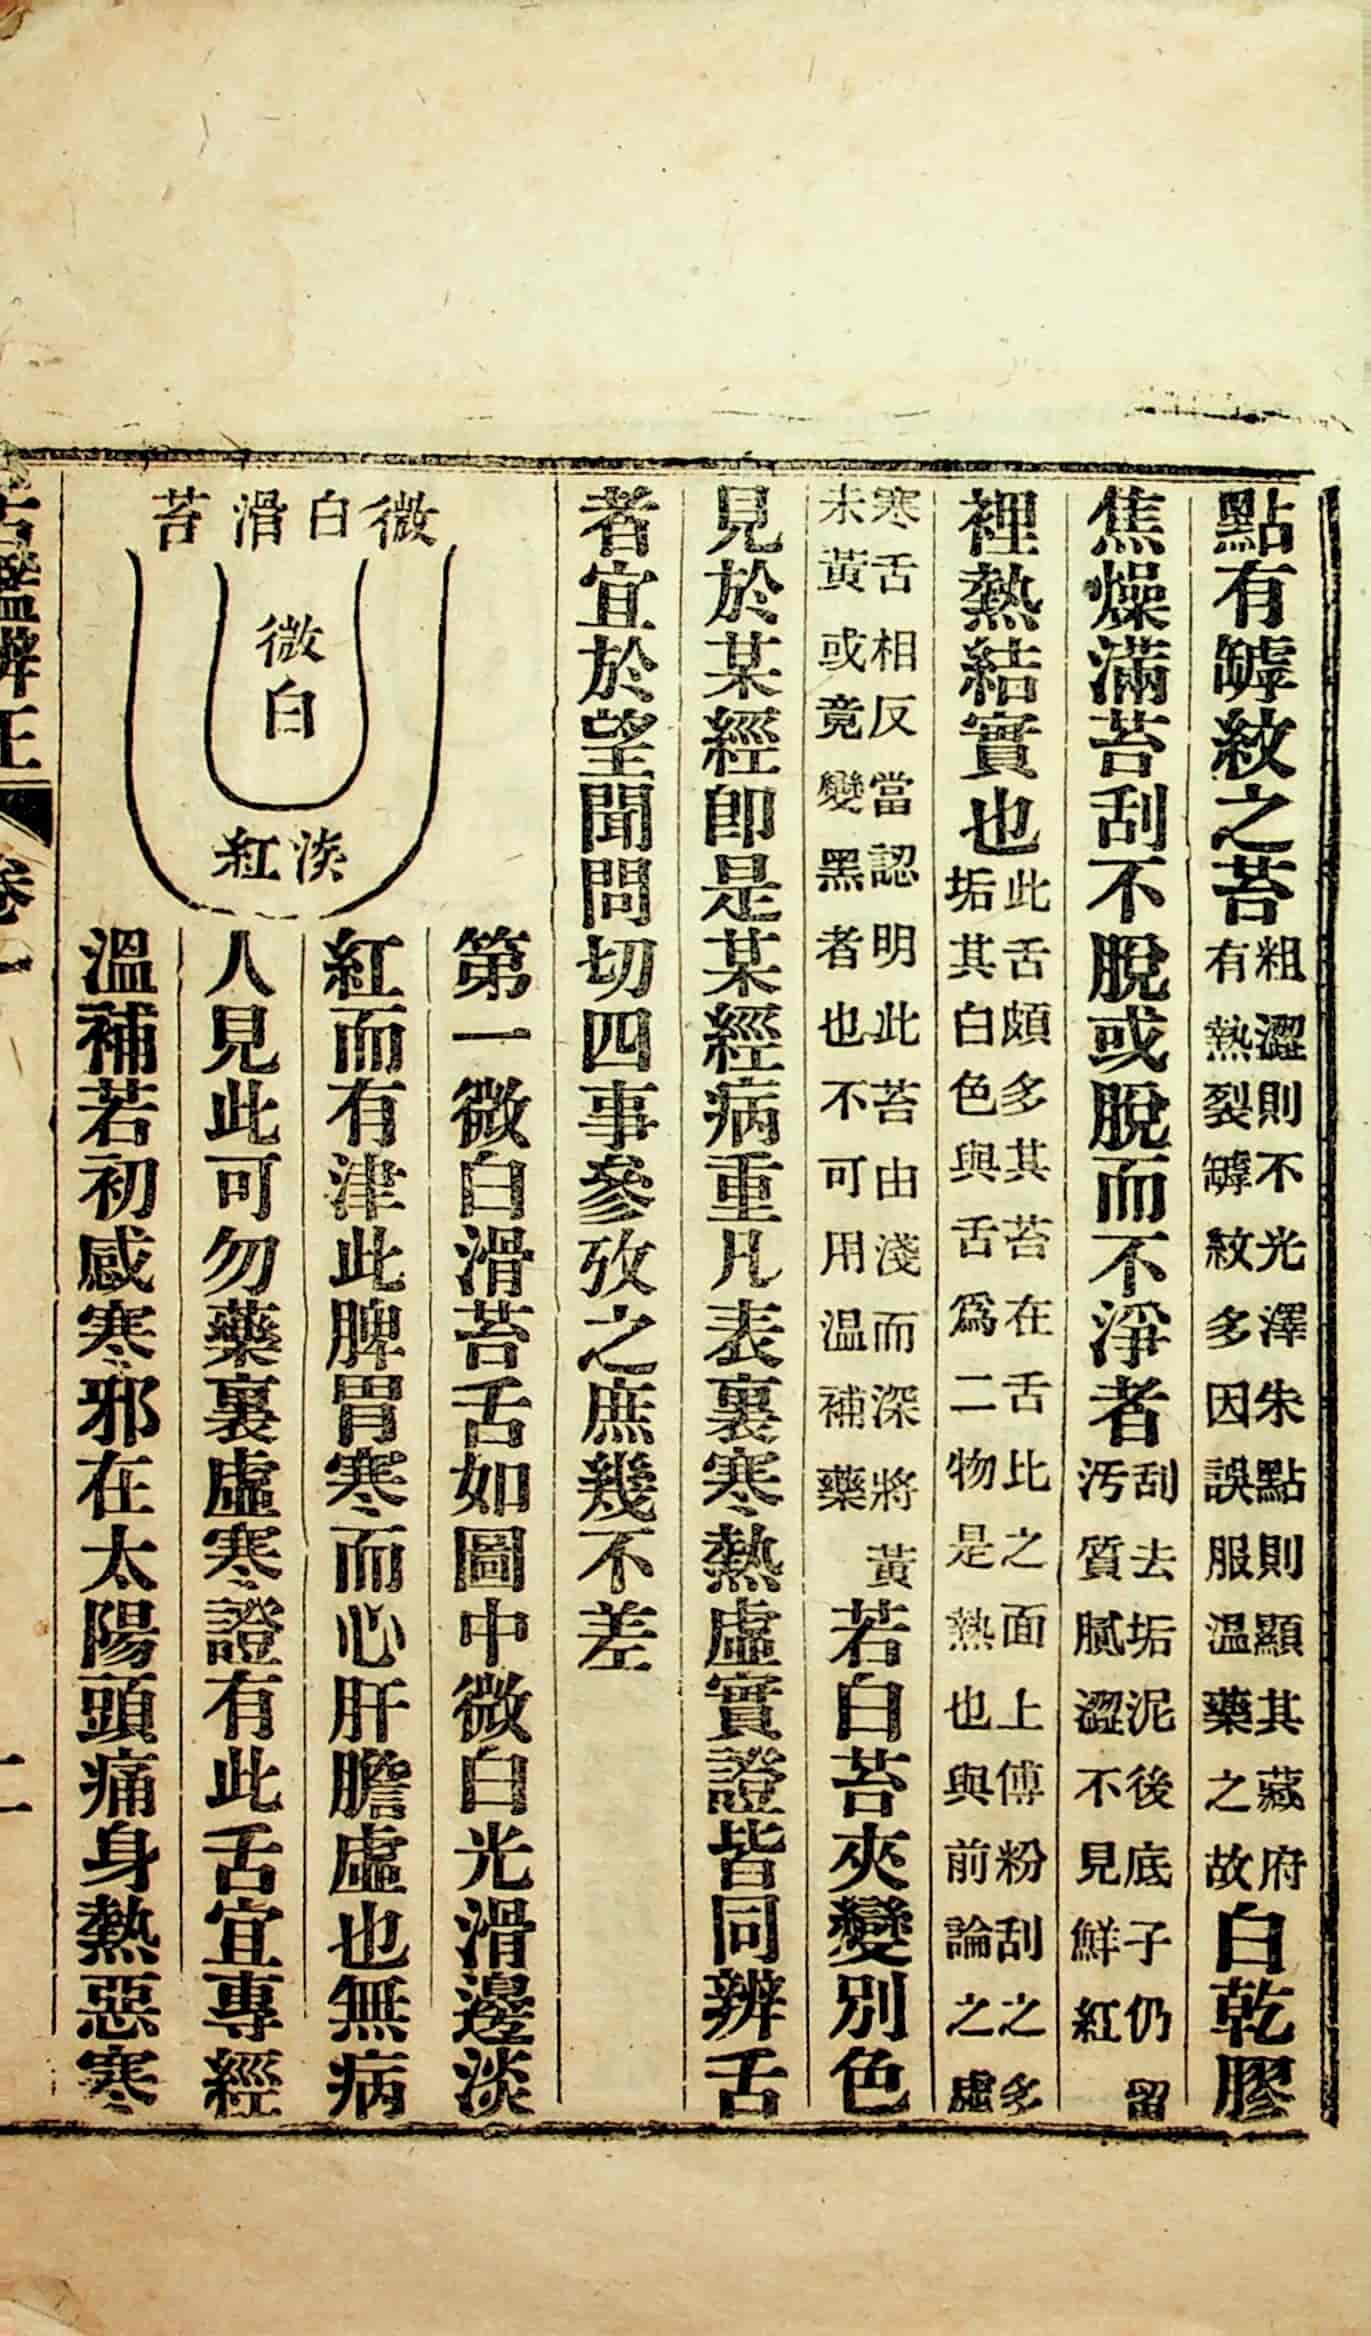 點有罅紋之苔粗澀則不光澤朱點則顯其藏府有熱裂罅紋多因誤服溫藥之故白乾膠
焦燥滿苔刮不脫或脫而不淨者刮去垢泥後底子仍留汚質膩澀不見鮮紅
裡熱結實也此舌頗多其苔在舌比之面上傅粉刮之多垢其白色與舌爲二物是熱也與前論之虛
寒舌相反當認明此苔由淺而深將黃未黃或竟變黑者也不可用溫補藥若白苔夾變別色
見於某經卽是某經病重凡表裏寒熱虛實證皆同辨舌
者宜於望聞問切四事參攷之庶幾不差
微白滑苔
微白
淡紅
第一微白滑苔舌如圖中微白光滑邊淡
紅而有津此脾胃寒而心肝膽虛也無病
人見此可勿藥裏虛寒證有此舌宜專經
溫補若初感寒邪在太陽頭痛身熱惡寒
舌鑑辨正
卷一
二